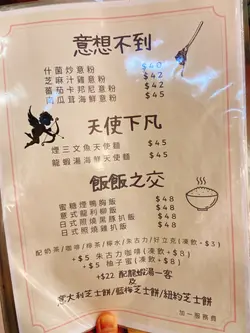 意想不到
什菌炒意粉 $40
芝麻汁雞意粉 $42
蕃茄卡邦尼意粉 $40
南瓜茸海鮮意粉 $45
天使下凡
煙三文魚天使麵 $45
龍蝦湯海鮮天使麵 $45
飯飯之交
蜜糖煙鴨胸飯 $48
意式龍利柳飯 $48
日式照燒黑豚扒飯 $48
日式照燒雞扒飯 $48
配奶茶/咖啡/檸茶/檸水/朱古力/好立克(凍飲+$3)
+$5 朱古力咖啡(凍飲+8)
+$5 柚子蜜(凍飲+$8)
+$22 配龍蝦湯一客
及
意大利芝士餅/藍梅芝士餅/紐約芝士餅
加一服務費